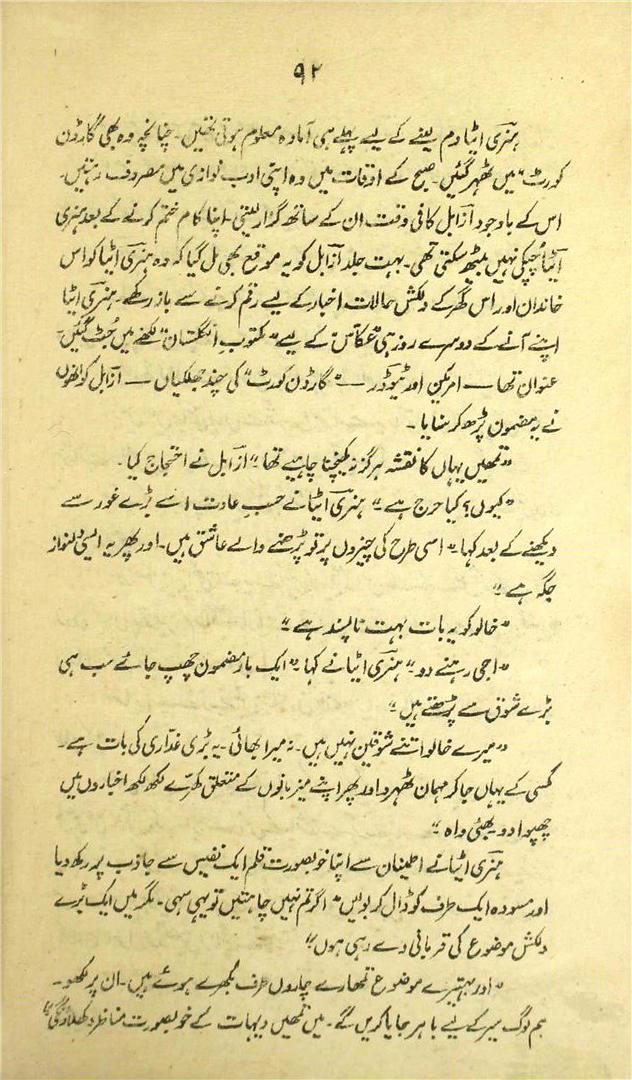 ۹۲
ہنری ایٹا دم لینے کے لیے پہلے ہی آمادہ معلوم ہوتی تھیں۔ چنانچہ وہ بھی گارڈن
کورٹ" میں ٹھہر گئیں۔ صبح کے اوقات میں وہ اپنی ادب نوازی میں مصروف رہتیں۔
اس کے باوجود آزابل کافی وقت ان کے ساتھ گزار لیتی۔ اپنا کام ختم کرنے کے بعد ہنری
ایٹا چپکی نہیں بیٹھ سکتی تھی۔ بہت جلد آزابل کو یہ موقع بھی مل گیا کہ وہ ہنری ایٹا کو اس
خاندان اور اس گھر کے دلکش حالات اخبار کے لیے رقم کرنے سے باز رکھے۔ ہنری ایٹا
اپنے آنے کے دوسرے روز ہی "عکاس" کے لیے "مکتوبِ انگلستان" لکھنے میں جُٹ گئیں۔
عنوان تھا — امریکن اور ٹیوڈر — "گارڈن کورٹ" کی چند جھلکیاں — آزابل کو انھوں
نے یہ مضمون پڑھ کر سنایا۔
"تمھیں یہاں کا نقشہ ہرگز نہ کھینچنا چاہیے تھا" ازابل نے احتجاج کیا۔
"کیوں؟ کیا حرج ہے" ہنری ایٹا نے حسبِ عادت اسے بڑے غور سے
دیکھنے کے بعد کہا "اسی طرح کی چیزوں پر تو پڑھنے والے عاشق ہیں۔ اور پھر یہ ایسی دلنواز
جگہ ہے"
"خالو کو یہ بات بہت ناپسند ہے"
"اجی رہنے دو" ہنری ایٹا نے کہا "ایک بار مضمون چھپ جائے سب ہی
بڑے شوق سے پڑھتے ہیں"
"میرے خالو اتنے شوقین نہیں ہیں۔ نہ میرا بھائی۔ یہ بڑی غدّاری کی بات ہے۔
کسی کے یہاں جا کر مہمان ٹھہرو اور پھر اپنے میزبانوں کے متعلق لکھ لکھ اخباروں میں
چھپوا دو بھئی واہ"
ہنری ایٹا نے اطمینان سے اپنا خوبصورت قلم ایک نفیس سے جاذب پر رکھ دیا
اور مسودہ ایک طرف کو ڈال کر بولیں "اگر تم نہیں چاہتیں تو یہی سہی۔ مگر میں ایک بڑے
دلکش موضوع کی قربانی دے رہی ہوں"
"اور بہتیرے موضوع تمھارے چاروں طرف بکھرے ہوئے ہیں۔ ان پر لکھو۔
ہم لوگ سیر کے لیے باہر جایا کریں گے۔ میں تمھیں دیہات کے خوبصورت مناظر دکھلاؤں گی"